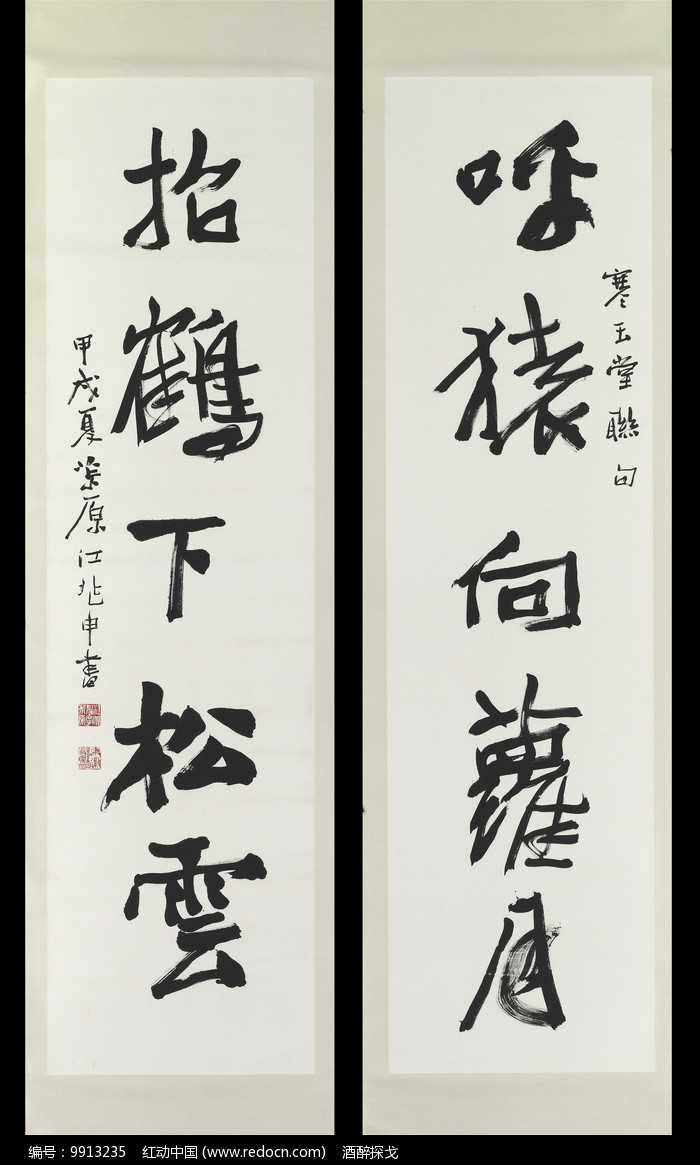 呼猿向蘿月
寒玉堂聯句
招鶴下松雲
甲戌夏 原江兆申書
编号：9913235 红动中国 (www.redocn.com) 酒醉探戈